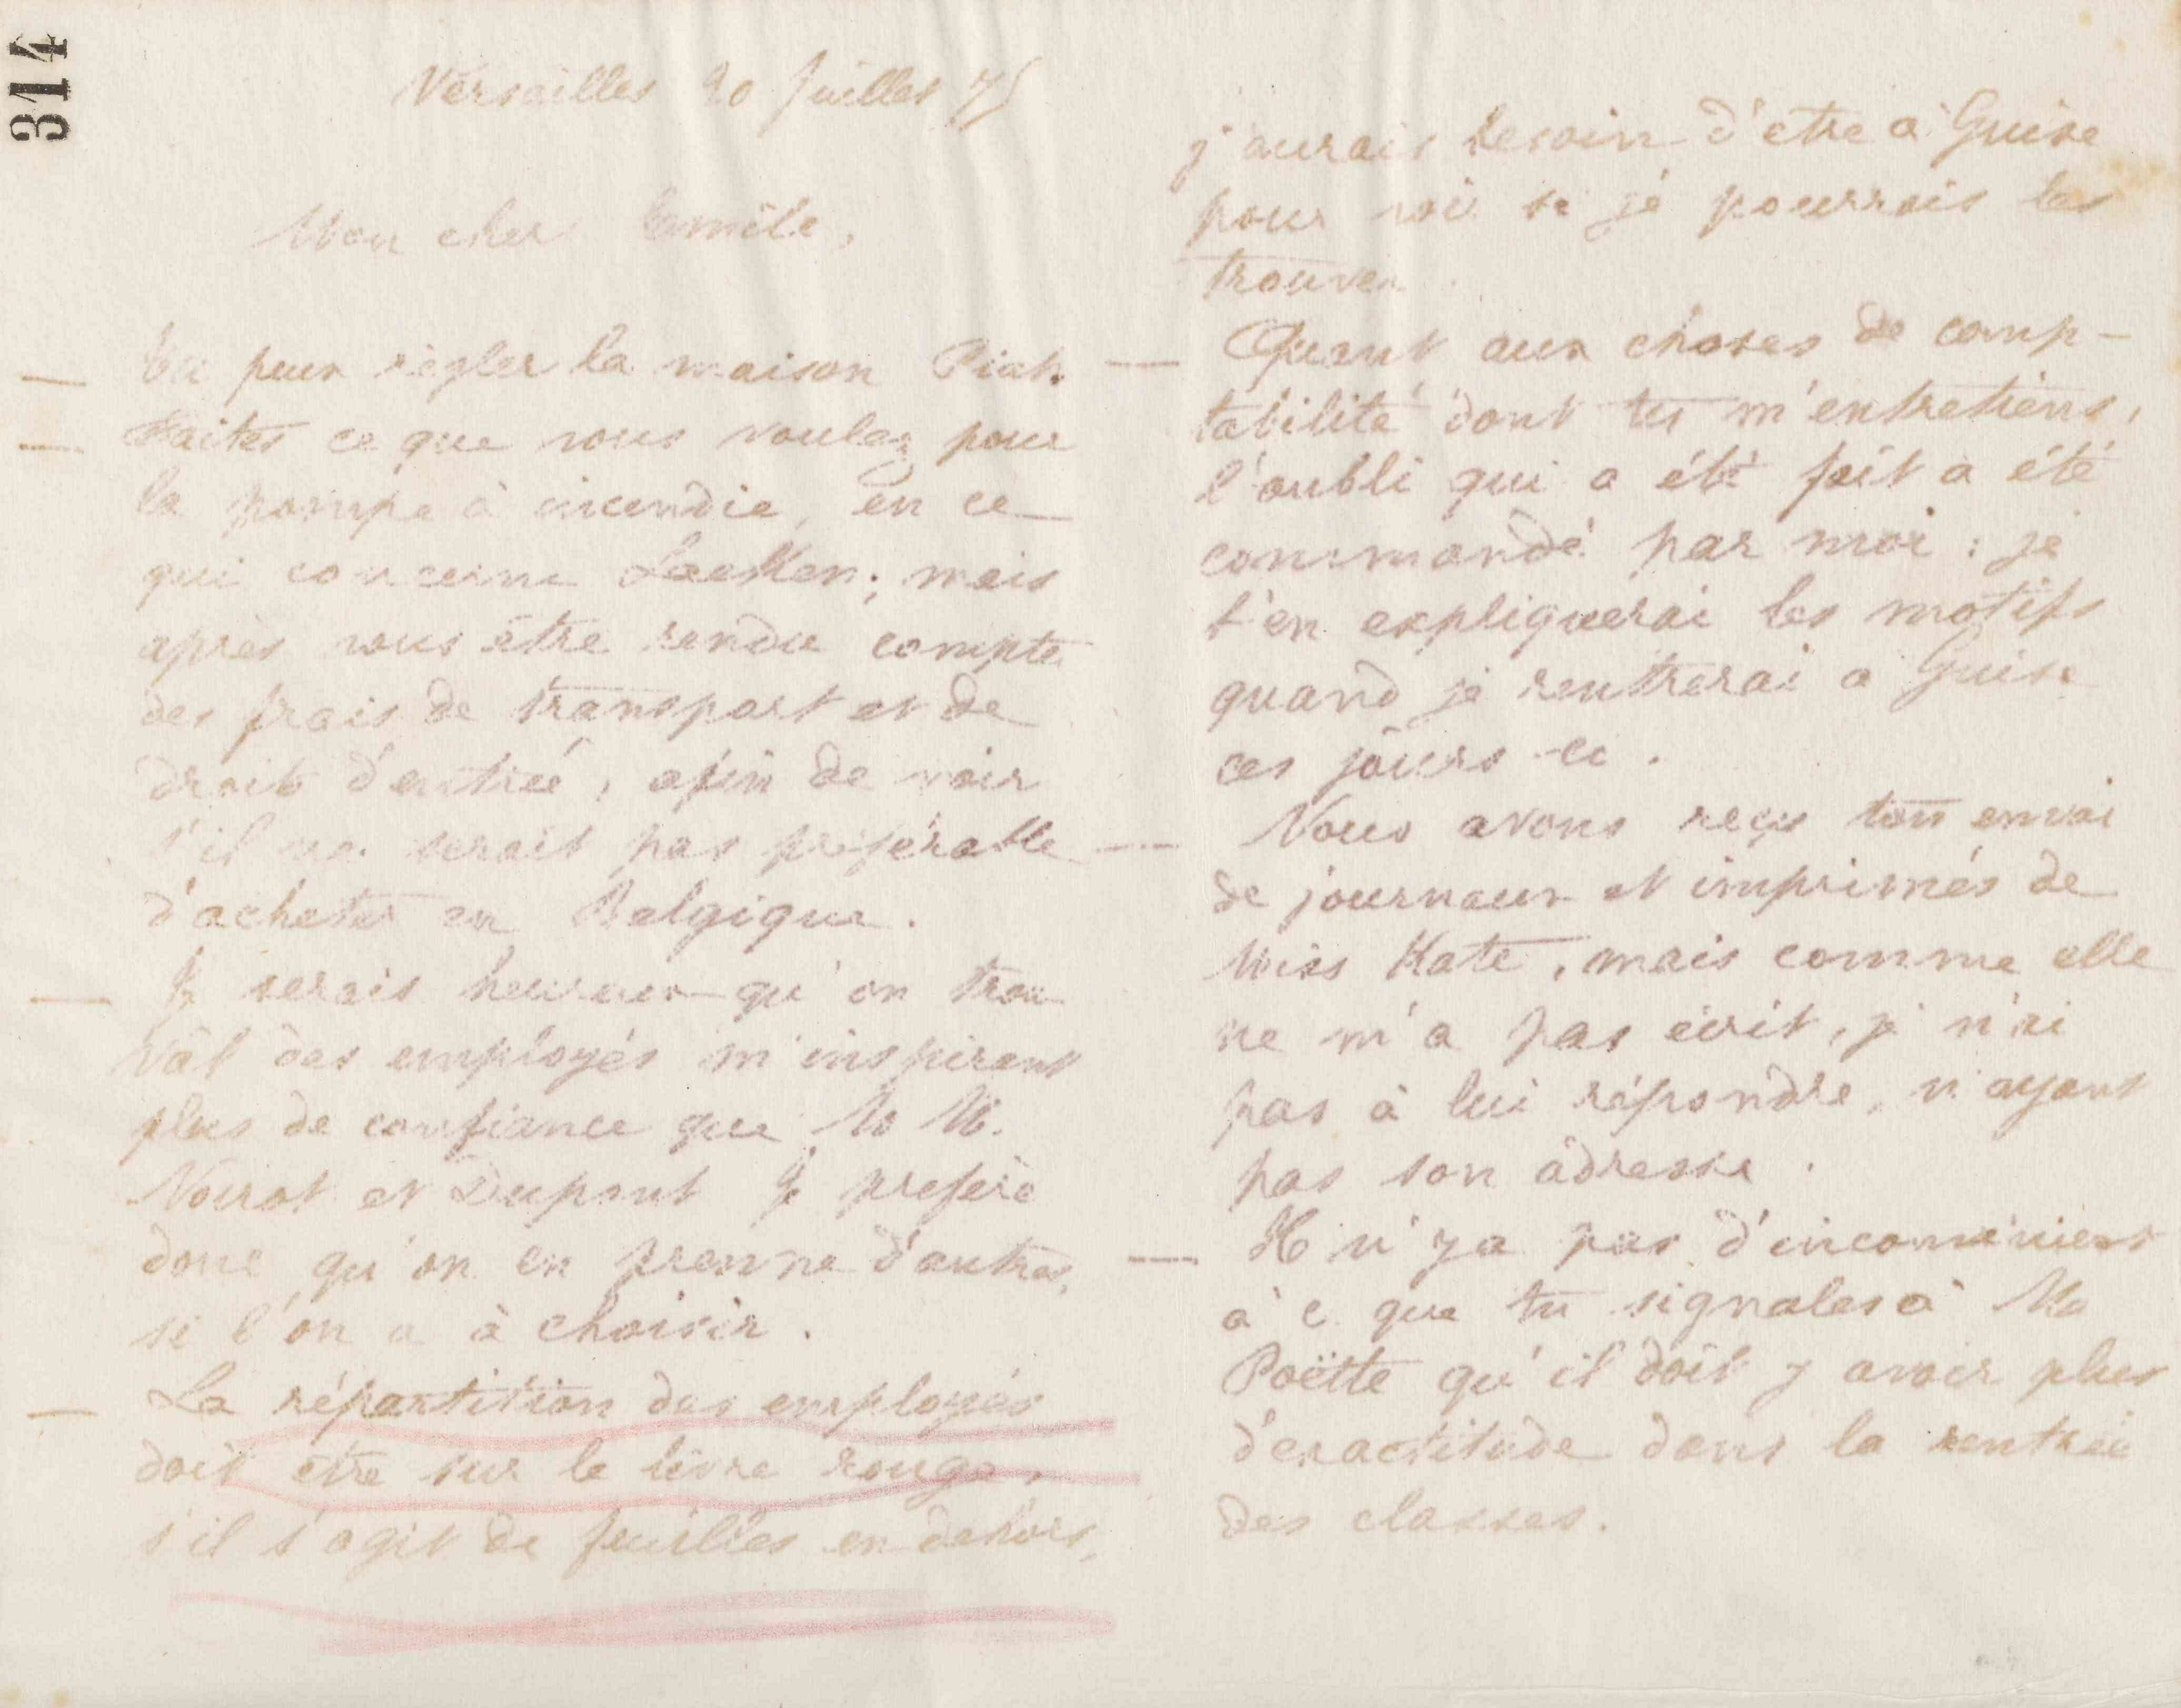 314
Versailles 20 Juillet 75
Mon cher Emile,
— Tu peux règler la maison Piat.
— Faites ce que vous voulez pour
la pompe à incendie, en ce
qui concerne Laeken; mais
après vous être rendu compte
des frais de transport et de
droits d'entrée, afin de voir
s'il ne serait pas préférable
d'acheter en Belgique.
— Je serais heureux qu'on trou
vât des employés m'inspirant
plus de confiance que M M.
Noirot et Dupont Je prefère
donc qu'on en prenne d'autres,
si l'on a à choisir.
— La répartition des employés
doit etre sur le livre rouge,
s'il s'agit de feuilles en dehors,
j'aurais besoin d'etre à Guise
pour voir si je pourrais les
trouver.
— Quant aux choses de comp-
tabilité dont tu m'entretiens,
l'oubli qui a été fait a été
commandé par moi; je
t'en expliquerai les motifs
quand je rentrerai a Guise
ces jours-ci.
— Nous avons reçu ton envoi
de journaux et imprimés de
Miss Kate, mais comme elle
ne m'a pas écrit, je n'ai
pas à lui répondre, n'ayant
pas son adresse.
— Il n'y a pas d'inconvénient
à ce que tu signales à
Poëtte qu'il doit y avoir plus
d'exactitude dans la rentrée
des classes.